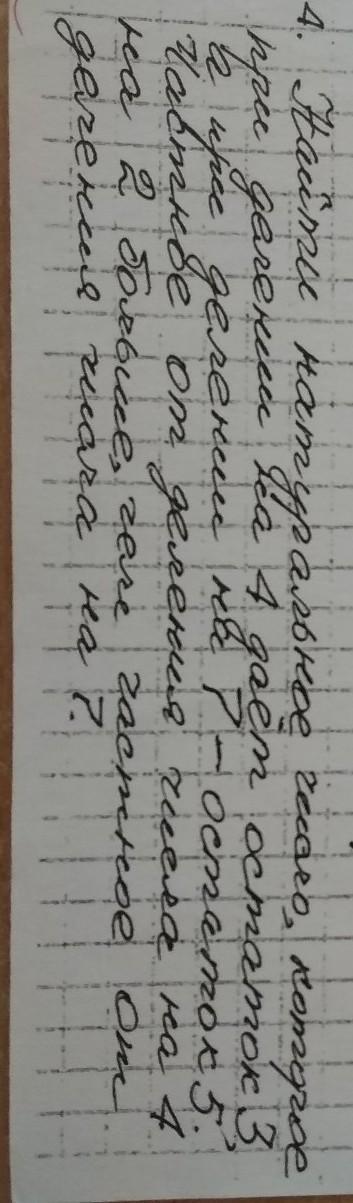 4. Найти натуральное число, которое
при делении на 4 даёт остаток 3,
а при делении на 7 – остаток 5.
Частное от деления числа на 4
на 2 больше, чем частное от
деления числа на 7.